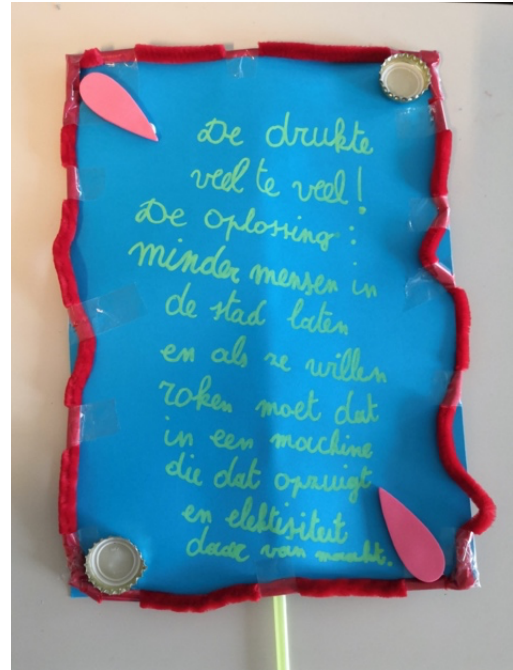 De drukte
veel te veel!
De oplossing:
minder mensen in
de stad laten
en als ze willen
roken moet dat
in een machine
die dat opzuigt
en elektisiteit
daar van maakt.